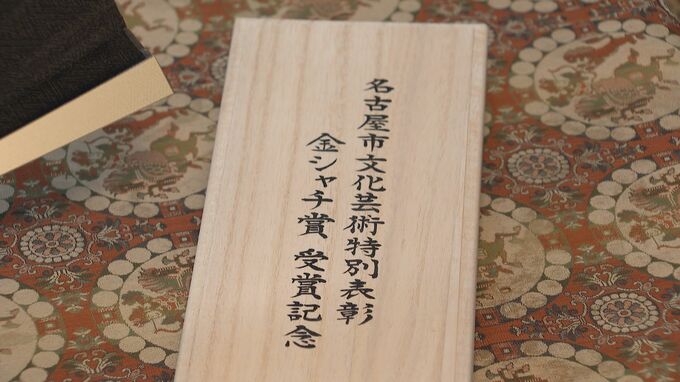 名古屋市文化芸術特別表彰
金シャチ賞 受賞記念